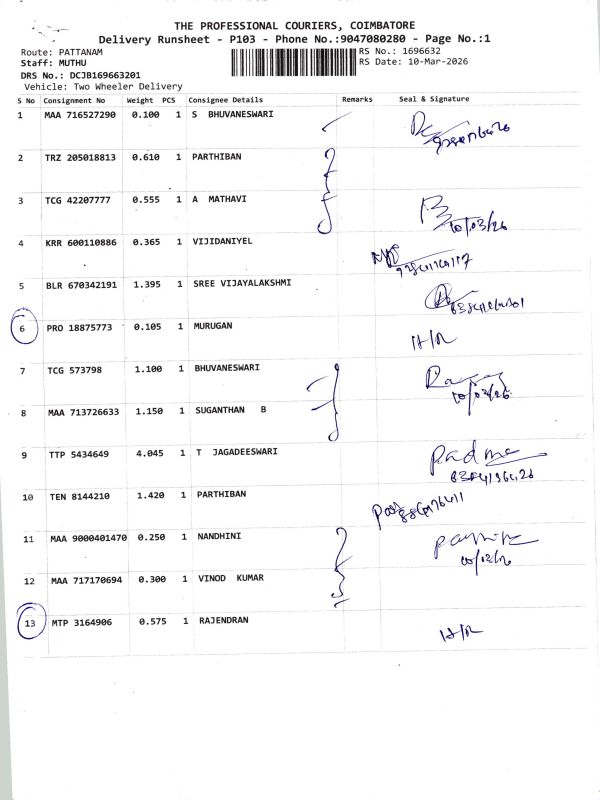 THE PROFESSIONAL COURIERS, COIMBATORE
Delivery Runsheet - P103 - Phone No.:9047080280 - Page No.:1
Route: PATTANAM RS No.: 1696632
Staff: MUTHU RS Date: 10-Mar-2026
DRS No.: DCJB169663201
Vehicle: Two Wheeler Delivery
S No Consignment No Weight PCS Consignee Details Remarks Seal & Signature
1 MAA 716527290 0.100 1 S BHUVANESWARI
2 TRZ 205018813 0.610 1 PARTHIBAN
3 TCG 42207777 0.555 1 A MATHAVI
10/03/26
4 KRR 600110886 0.365 1 VIJIDANIYEL
5 BLR 670342191 1.395 1 SREE VIJAYALAKSHMI
6 PRO 18875773 0.105 1 MURUGAN
7 TCG 573798 1.100 1 BHUVANESWARI
10/03/26
8 MAA 713726633 1.150 1 SUGANTHAN B
9 TTP 5434649 4.045 1 T JAGADEESWARI Padma
10 TEN 8144210 1.420 1 PARTHIBAN
11 MAA 9000401470 0.250 1 NANDHINI
12 MAA 717170694 0.300 1 VINOD KUMAR
13 MTP 3164906 0.575 1 RAJENDRAN